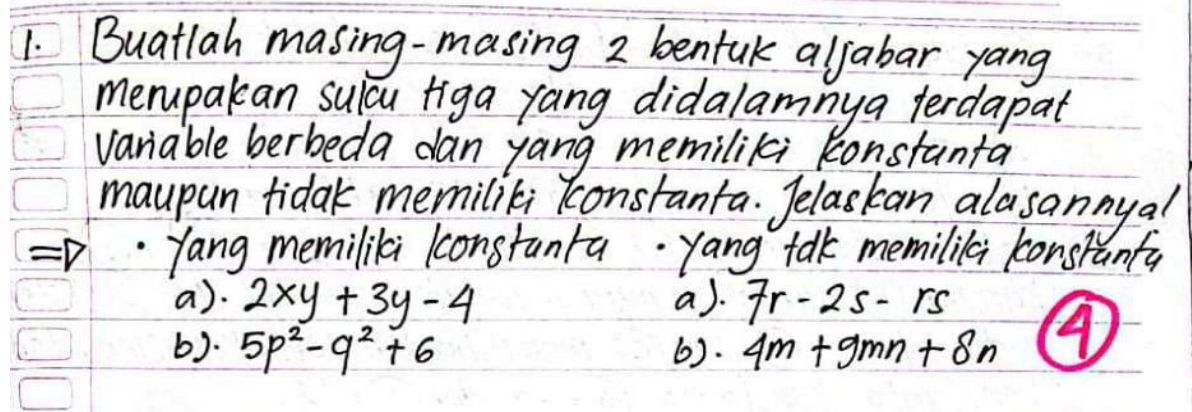 1. Buatlah masing-masing 2 bentuk aljabar yang
merupakan suku tiga yang didalamnya terdapat
variable berbeda dan yang memiliki konstanta
maupun tidak memiliki konstanta. Jelaskan alasannya!
=> • Yang memiliki konstanta • Yang tdk memiliki konstanta
a). 2xy + 3y - 4 a). 7r - 2s - rs
b). 5p² - q² + 6 b). 4m + 9mn + 8n
4